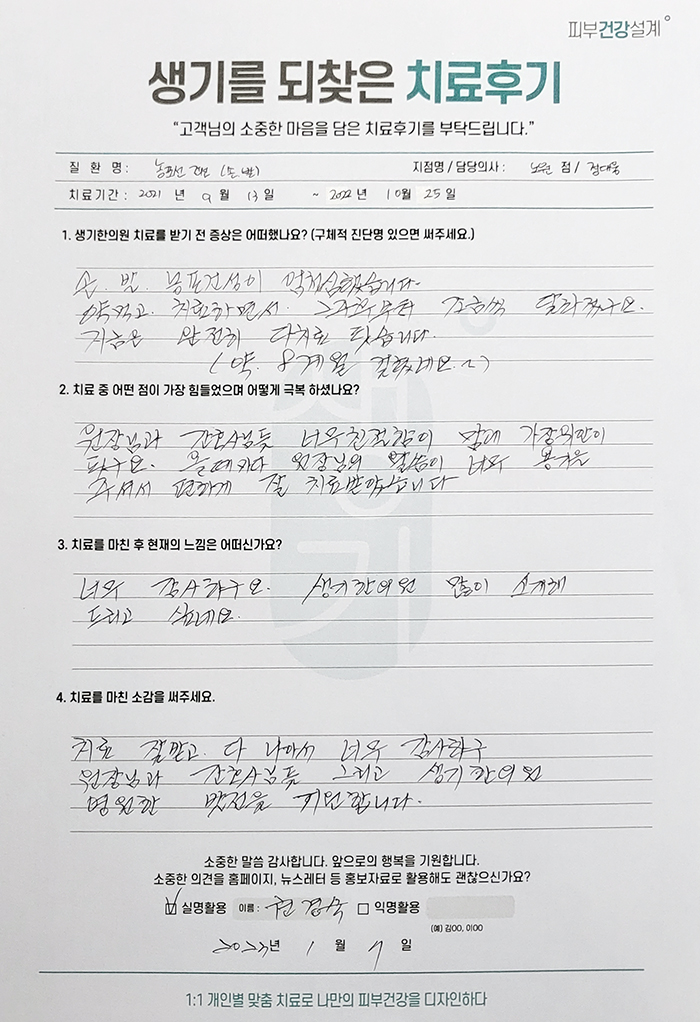 피부건강설계
생기를 되찾은 치료후기
“고객님의 소중한 마음을 담은 치료후기를 부탁드립니다.”
질 환 명 : 농포선 건선 (손.발) 지점명 / 담당의사 : 노원 점 / 정대웅
치료기간 : 2021 년 9 월 13 일 ~ 2022 년 10 월 25 일
1. 생기한의원 치료를 받기 전 증상은 어떠했나요? (구체적 진단명 있으면 써주세요.)
손. 발. 농포건성이 억쑤심했습니다.
약먹고. 치료하면서. 조금씩 달라졌구요.
지금은 완전히 다치료 됫습니다.
(약. 8개월 걸렸네요.~)
2. 치료 중 어떤 점이 가장 힘들었으며 어떻게 극복 하셨나요?
원장님과 간호사님듯 너무친절함이 맘에 가장위안이
돠구요. 올때마다 원장님의 말씀이 너무 용기을
주셔서 편하게 잘 치료받았습니다
생기
3. 치료를 마친 후 현재의 느낌은 어떠신가요?
너무 감사하구요. 생기한의원 많이 소개해
드리고 싶네요.
4. 치료를 마친 소감을 써주세요.
치료 잘받고. 다 나아서 너무 감사하구
원장님과 간호사님듯 그리고 생기한의원
영원한 발전을 기원합니다.
소중한 말씀 감사합니다. 앞으로의 행복을 기원합니다.
소중한 의견을 홈페이지, 뉴스레터 등 홍보자료로 활용해도 괜찮으신가요?
실명활용 이름 : 권경숙 익명활용
(예) 김OO, 이OO
2023년 1 월 7 일
1:1 개인별 맞춤 치료로 나만의 피부건강을 디자인하다